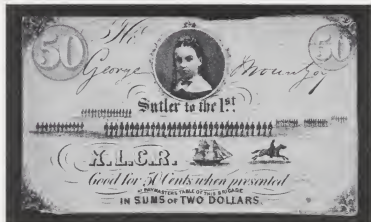 50 The 50
George Mountjoy
Sutler to the 1st
N.L.C.R.
Good for 50 Cents when presented
AT PAYMASTERS TABLE OF THIS BRIGADE
IN SUMS OF TWO DOLLARS.